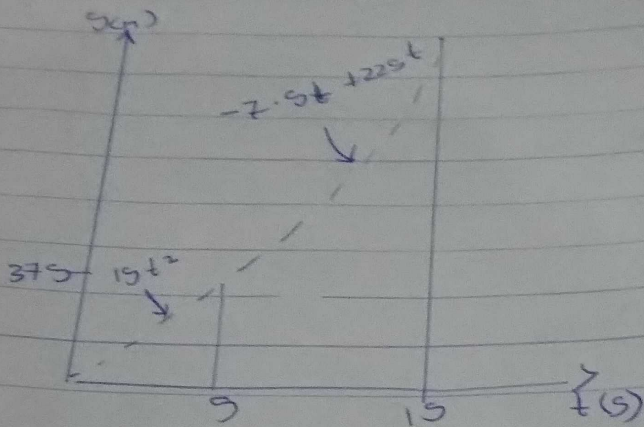 S(m)
-7.5t +225t
375
15t²
5
15
t(s)